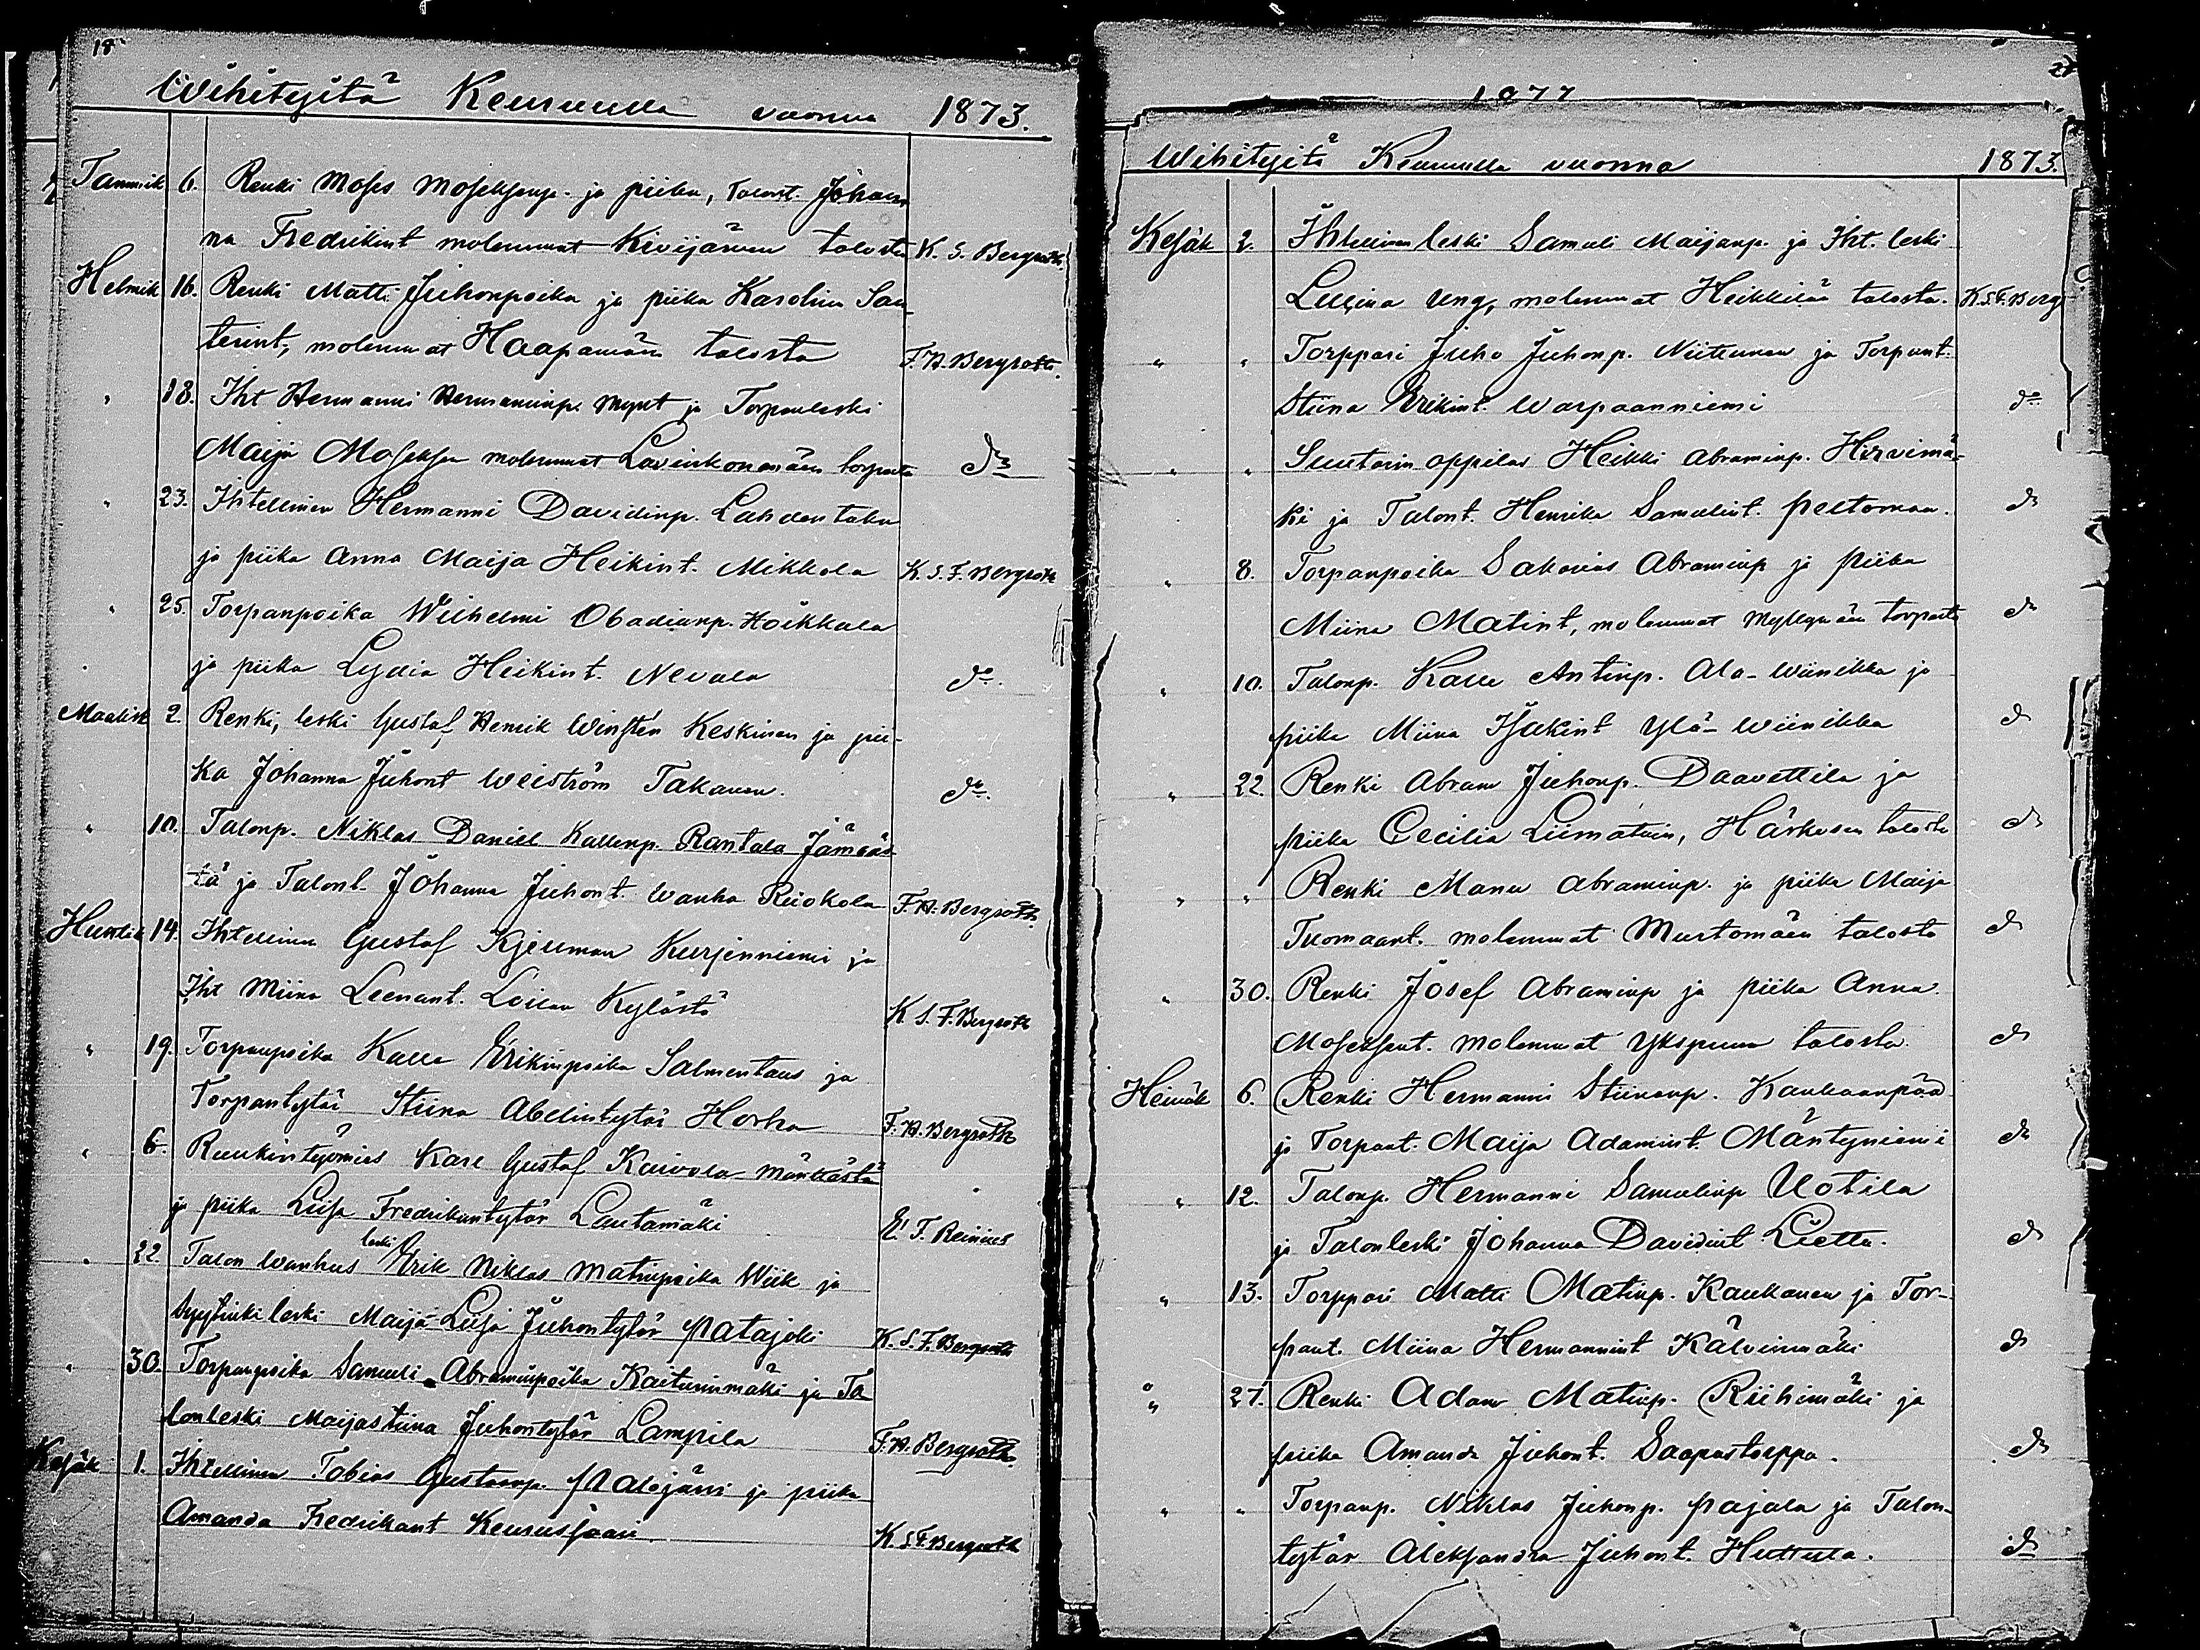 18
Wihityitä Keuruulla vuonna 1873.
Tammik 6. Renki Moses Moseksenp. ja piika, Talont. Johan
na Fredrikint molemmat Kivijärven talosta K. S. Bergroth.
Helmik 16. Renki Matti Juhonpoika ja piika Karolina San
terint, molemmat Haapamäen talosta F. H. Bergroth.
" 18. Iht Hermanni Hermanninp. Mynt ja Torpanleski
Maija Moseksen molemmat torpasta do
" 23. Ihtellinen Hermanni Davidinp. Lahdentaka
ja piika Anna Maija Heikint. Mikkola K. S. F. Bergroth
" 25. Torpanpoika Wilhelmi Obadianp. Hoikkala
ja piika Lydia Heikint. Nevala do.
Maalisk 2. Renki, leski Gustaf Henrik Winstén Keskinen ja pii-
ka Johanna Juhont Weiström Takanen. do.
" 10. Talonp. Niklas Daniel Kallenp. Rantala Jämsäs
tä ja Talont. Johanna Juhont. Wanha Riiokola F. H. Bergroth.
Huhtik 14. Ihtellinen Gustaf Kjeuman Kurjenniemi ja
Iht Miina Leenant. Loilan Kylästä K. S. F. Bergroth
" 19. Torpanpoika Kalle Erikinpoika Salmentaus ja
Torpantytär Stiina Abelintytär Horha F. H. Bergroth
" 6. Ruukintyömies Karl Gustaf Kaivola Mänttästä
ja piika Liisa Fredrikintytär Lautamäki E. F. Reinius
" 22. Talon Wanhus leski Erik Niklas Matinpoika Wiik ja
leski Maija Liisa Juhontytär Patajoki K. S. F. Bergroth
" 30. Torpanpoika Samuli Abraminpoika Kaitunmäki ja Ta
lonleski Maijastiina Juhontytär Lampila F. H. Bergroth.
Kesäk 1. Ihtellinen Tobias Gustaanp. Valojärvi ja piika
Amanda Fredrikant Keurussaari K. S. F. Bergroth
1877
Wihityitä Keuruulla vuonna 1873.
Kesäk 2. Ihtellinen leski Samuli Maijanp. ja Iht. leski
Leena Ung, molemmat Heikkilän talosta. K. S. F. Berg
" " Torppari Juho Juhonp. Niittunen ja Torpant.
Stiina Erikint. Warpaanniemi do
" " Suutarin oppilas Heikki Abraminp. Hirvimä-
ki ja Talont. Henrika Samulint. Peltomaa. do
" 8. Torpanpoika Sakarias Abraminp ja piika
Miina Matint, molemmat Myllymäen torpasta do
" 10. Talonp. Kalle Antinp. Ala-Wiinikka ja
piika Miina Isakint Ylä-Wiinikka do
" 22. Renki Abram Juhonp. Daavettila ja
piika Cecilia Liimatain, Härkösen talosta do
" " Renki Manu Abraminp. ja piika Maija
Tuomaant. molemmat Murtomäen talosta do
" 30. Renki Josef Abraminp ja piika Anna
Moseksent. molemmat Ykspuun talosta. do
Heinäk 6. Renki Hermanni Stiinanp. Kankaanpää
ja Torpant. Maija Adamint. Mäntyniemi do
" 12. Talonp. Hermanni Samulinp Uotila
ja Talonleski Johanna Davidint Lietta. do
" 13. Torppari Matti Matinp. Kaukanen ja Tor-
pant. Miina Hermannint Kälvinmäki do
" 27. Renki Adam Matinp. Riihimäki ja
piika Amanda Juhont. Saapastorppa. do
" " Torpanp. Niklas Juhonp. Pajala ja Talon-
tytär Aleksandra Juhont. Huttula. do